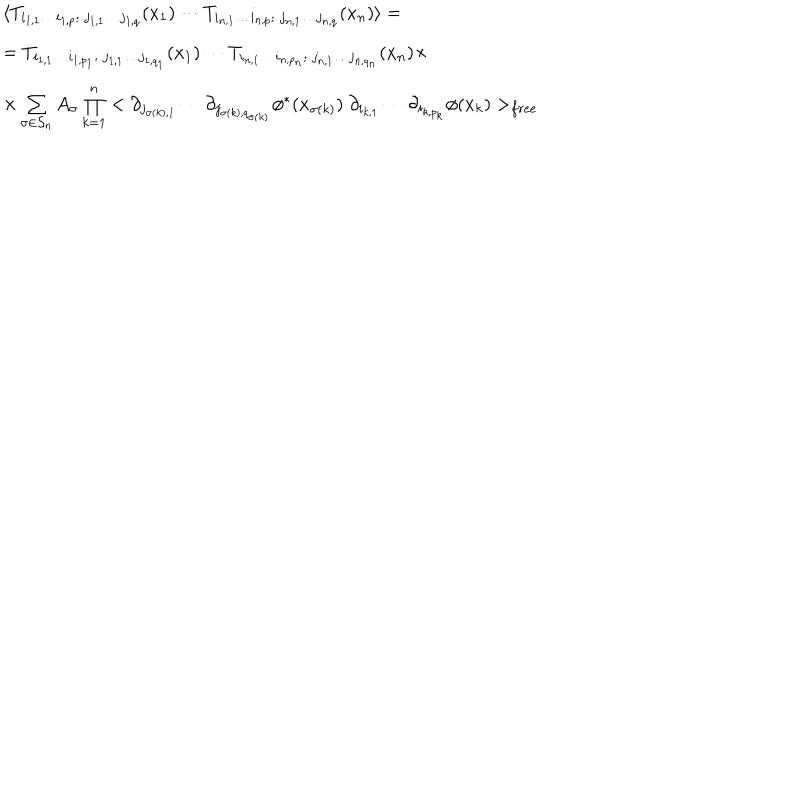 ⟨T_{i_{1,1}…i_{1,p}; j_{1,1}…j_{1,q}}(x_1) ⋯ T_{i_{n,1}…i_{n,p}; j_{n,1}…j_{n,q}}(x_n)⟩ =
= T_{i_{1,1}…i_{1,p_1}; j_{1,1}…j_{1,q_1}}(x_1) ⋯ T_{i_{n,1}…i_{n,p_n}; j_{n,1}…j_{n,q_n}}(x_n) ×
× ∑_{σ∈S_n} A_σ ∏_{k=1}^{n} < ∂_{j_{σ(k),1}} ⋯ ∂_{j_{σ(k),q_{σ(k)}}} ø^*(x_{σ(k)}) ∂_{i_{k,1}} ⋯ ∂_{i_{k,p_k}} ø(x_k) >_{free}